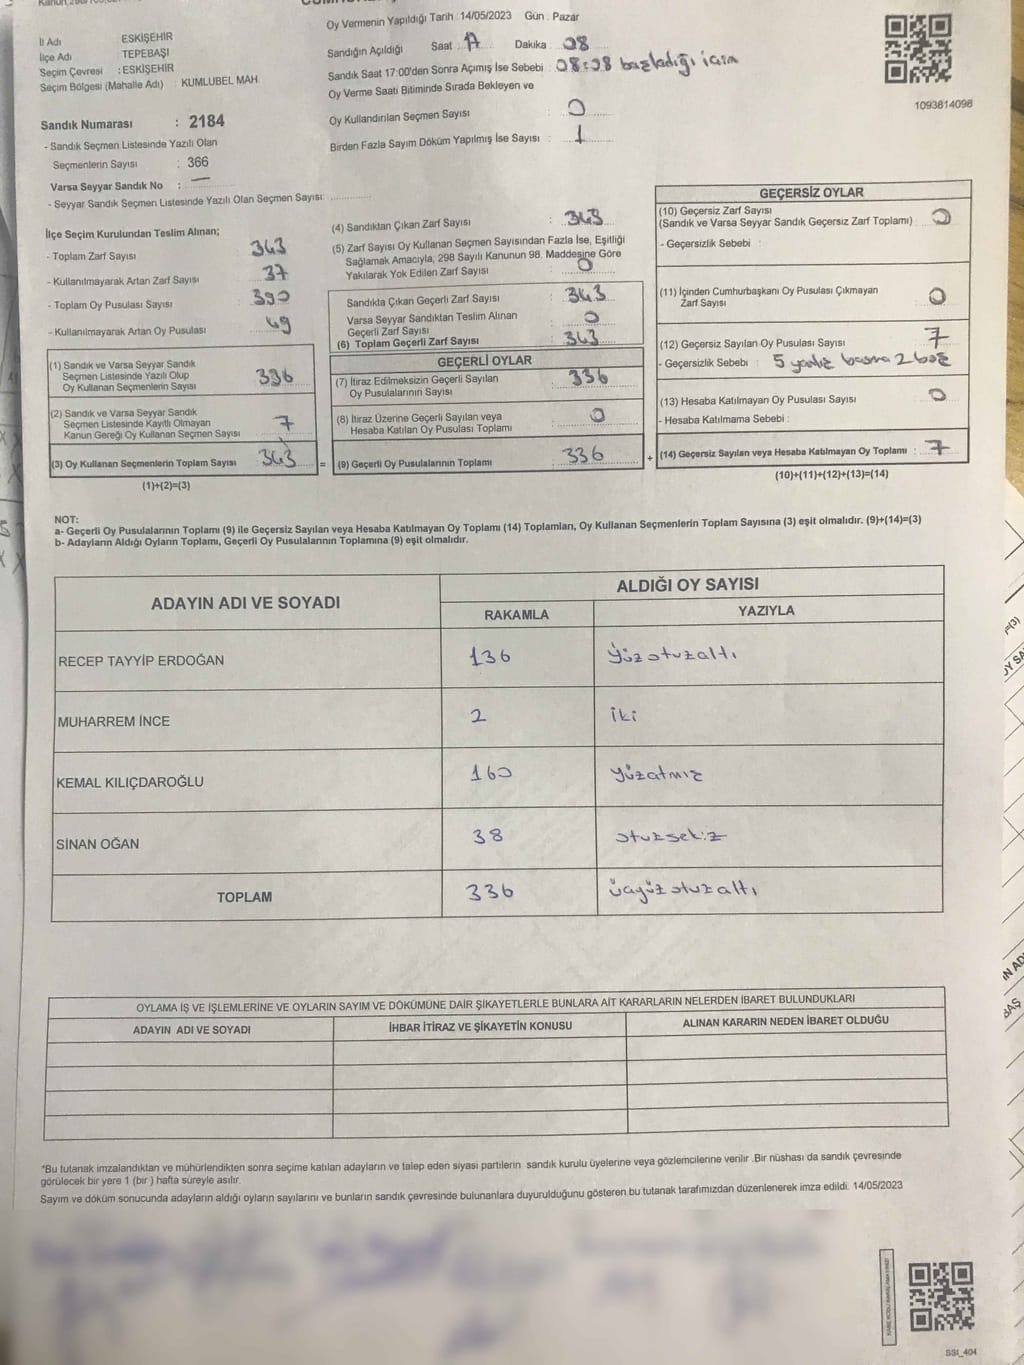 Oy Vermenin Yapıldığı Tarih : 14/05/2023 Gün : Pazar
İl Adı ESKİŞEHİR
İlçe Adı TEPEBAŞI
Seçim Çevresi : ESKİŞEHİR
Seçim Bölgesi (Mahalle Adı) : KUMLUBEL MAH.
Sandığın Açıldığı Saat : 17 Dakika : 08
Sandık Saat 17:00'den Sonra Açımış İse Sebebi : 08:08 başladığı için
Oy Verme Saati Bitiminde Sırada Bekleyen ve
Oy Kullandırılan Seçmen Sayısı : 0
Birden Fazla Sayım Döküm Yapılmış İse Sayısı : 1
1093814098
Sandık Numarası : 2184
- Sandık Seçmen Listesinde Yazılı Olan
Seçmenlerin Sayısı : 366
Varsa Seyyar Sandık No : —
- Seyyar Sandık Seçmen Listesinde Yazılı Olan Seçmen Sayısı:
İlçe Seçim Kurulundan Teslim Alınan;
- Toplam Zarf Sayısı 343
- Kullanılmayarak Artan Zarf Sayısı 37
- Toplam Oy Pusulası Sayısı 390
- Kullanılmayarak Artan Oy Pusulası 49
(1) Sandık ve Varsa Seyyar Sandık
Seçmen Listesinde Yazılı Olup
Oy Kullanan Seçmenlerin Sayısı 336
(2) Sandık ve Varsa Seyyar Sandık
Seçmen Listesinde Kayıtlı Olmayan
Kanun Gereği Oy Kullanan Seçmen Sayısı 7
(3) Oy Kullanan Seçmenlerin Toplam Sayısı 343 =
(1)+(2)=(3)
(4) Sandıktan Çıkan Zarf Sayısı : 343
(5) Zarf Sayısı Oy Kullanan Seçmen Sayısından Fazla İse, Eşitliği
Sağlamak Amacıyla, 298 Sayılı Kanunun 98. Maddesine Göre
Yakılarak Yok Edilen Zarf Sayısı : 0
Sandıkta Çıkan Geçerli Zarf Sayısı : 343
Varsa Seyyar Sandıktan Teslim Alınan
Geçerli Zarf Sayısı : 0
(6) Toplam Geçerli Zarf Sayısı : 343
GEÇERLİ OYLAR
(7) İtiraz Edilmeksizin Geçerli Sayılan
Oy Pusulalarının Sayısı : 336
(8) İtiraz Üzerine Geçerli Sayılan veya
Hesaba Katılan Oy Pusulası Toplamı : 0
(9) Geçerli Oy Pusulalarının Toplamı : 336 +
GEÇERSİZ OYLAR
(10) Geçersiz Zarf Sayısı
(Sandık ve Varsa Seyyar Sandık Geçersiz Zarf Toplamı) : 0
- Geçersizlik Sebebi :
(11) İçinden Cumhurbaşkanı Oy Pusulası Çıkmayan
Zarf Sayısı : 0
(12) Geçersiz Sayılan Oy Pusulası Sayısı : 7
- Geçersizlik Sebebi : 5 yanlış basma 2 boş
(13) Hesaba Katılmayan Oy Pusulası Sayısı : 0
- Hesaba Katılmama Sebebi :
(14) Geçersiz Sayılan veya Hesaba Katılmayan Oy Toplamı : 7
(10)+(11)+(12)+(13)=(14)
NOT:
a- Geçerli Oy Pusulalarının Toplamı (9) ile Geçersiz Sayılan veya Hesaba Katılmayan Oy Toplamı (14) Toplamları, Oy Kullanan Seçmenlerin Toplam Sayısına (3) eşit olmalıdır. (9)+(14)=(3)
b- Adayların Aldığı Oyların Toplamı, Geçerli Oy Pusulalarının Toplamına (9) eşit olmalıdır.
ADAYIN ADI VE SOYADI ALDIĞI OY SAYISI
RAKAMLA YAZIYLA
RECEP TAYYİP ERDOĞAN 136 Yüzotuzaltı
MUHARREM İNCE 2 iki
KEMAL KILIÇDAROĞLU 160 yüzatmız
SİNAN OĞAN 38 otuzsekiz
TOPLAM 336 üçyüzotuzaltı
OYLAMA İŞ VE İŞLEMLERİNE VE OYLARIN SAYIM VE DÖKÜMÜNE DAİR ŞİKAYETLERLE BUNLARA AİT KARARLARIN NELERDEN İBARET BULUNDUKLARI
ADAYIN ADI VE SOYADI İHBAR İTİRAZ VE ŞİKAYETİN KONUSU ALINAN KARARIN NEDEN İBARET OLDUĞU
*Bu tutanak imzalandıktan ve mühürlendikten sonra seçime katılan adayların ve talep eden siyasi partilerin sandık kurulu üyelerine veya gözlemcilerine verilir .Bir nüshası da sandık çevresinde
görülecek bir yere 1 (bir ) hafta süreyle asılır.
Sayım ve döküm sonucunda adayların aldığı oyların sayılarını ve bunların sandık çevresinde bulunanlara duyurulduğunu gösteren bu tutanak tarafımızdan düzenlenerek imza edildi. 14/05/2023
SSI_404